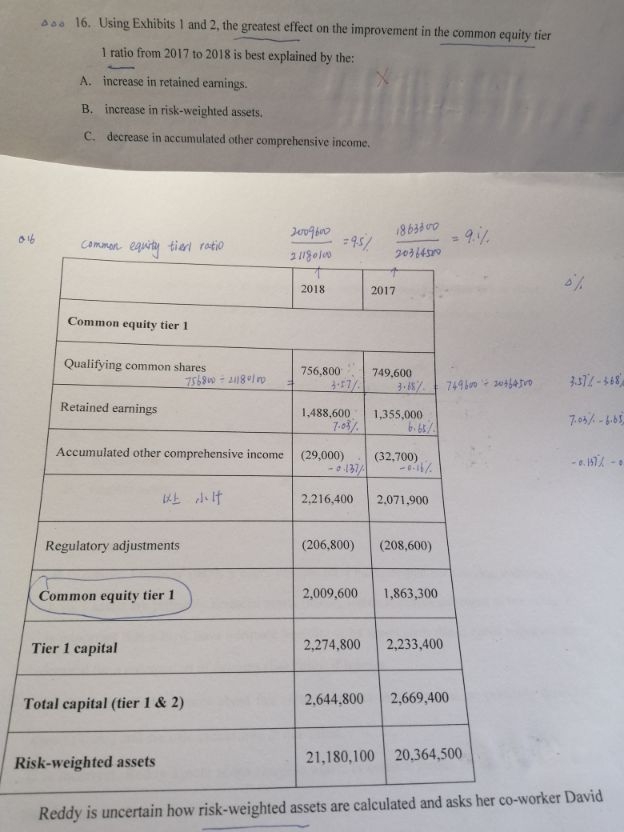 16. Using Exhibits 1 and 2, the greatest effect on the improvement in the common equity tier
1 ratio from 2017 to 2018 is best explained by the:
A. increase in retained earnings.
B. increase in risk-weighted assets.
C. decrease in accumulated other comprehensive income.
Q16 common equity tier1 ratio 2009600 / 21180100 = 9.5% 1863300 / 20364500 = 9.1%
2018 2017 Δ%
Common equity tier 1
Qualifying common shares 756,800 749,600
756800 ÷ 21180100 = 3.57% 3.68% 749600 ÷ 20364500 3.57% - 3.68%
Retained earnings 1,488,600 1,355,000
7.03% 6.65% 7.03% - 6.65
Accumulated other comprehensive income (29,000) (32,700)
-0.137% -0.16% -0.137% - 0
以上 小计 2,216,400 2,071,900
Regulatory adjustments (206,800) (208,600)
Common equity tier 1 2,009,600 1,863,300
Tier 1 capital 2,274,800 2,233,400
Total capital (tier 1 & 2) 2,644,800 2,669,400
Risk-weighted assets 21,180,100 20,364,500
Reddy is uncertain how risk-weighted assets are calculated and asks her co-worker David